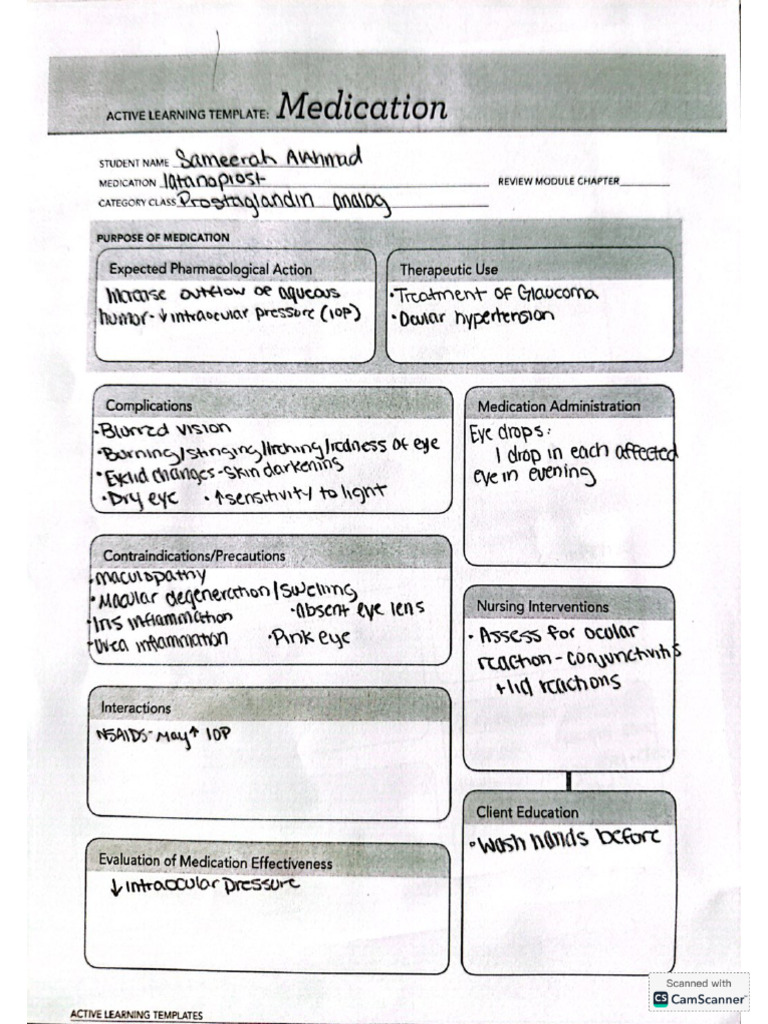 ACTIVE LEARNING TEMPLATE: Medication
STUDENT NAME Sameerah Alahmad
MEDICATION latanoprost
REVIEW MODULE CHAPTER
CATEGORY CLASS Prostaglandin analog
PURPOSE OF MEDICATION
Expected Pharmacological Action
Increase outflow of aqueous
humor - ↓ intraocular pressure (IOP)
Therapeutic Use
• Treatment of Glaucoma
• Ocular hypertension
Complications
• Blurred vision
• Burning/stinging/itching/redness of eye
• Eyelid changes - skin darkening
• Dry eye • ↑ sensitivity to light
Medication Administration
Eye drops:
1 drop in each affected
eye in evening
Contraindications/Precautions
• maculopathy
• Macular degeneration/swelling
• Iris inflammation • Absent eye lens
• Uvea inflammation • Pink eye
Nursing Interventions
• Assess for ocular
reaction - conjunctivitis
+ lid reactions
Interactions
NSAIDS - May ↑ IOP
Client Education
• Wash hands before
Evaluation of Medication Effectiveness
↓ intraocular pressure
ACTIVE LEARNING TEMPLATES
Scanned with
CS CamScanner